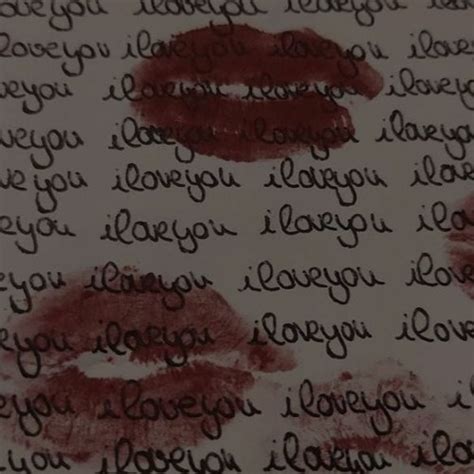 oveyou iloveyou iloveyou ilo
loveyou iloveyou iloveyou ilove
veyou iloveyou iloveyou ilove
oveyou iloveyou iloveyou iloveyou
ve you iloveyou iloveyou ilov
veyou iloveyou iloveyou ilo
eyou iloveyou iloveyou ilo
eyou iloveyou iloveyou ilove
eyou iloveyou iloveyou i
you iloveyou iloveyou il